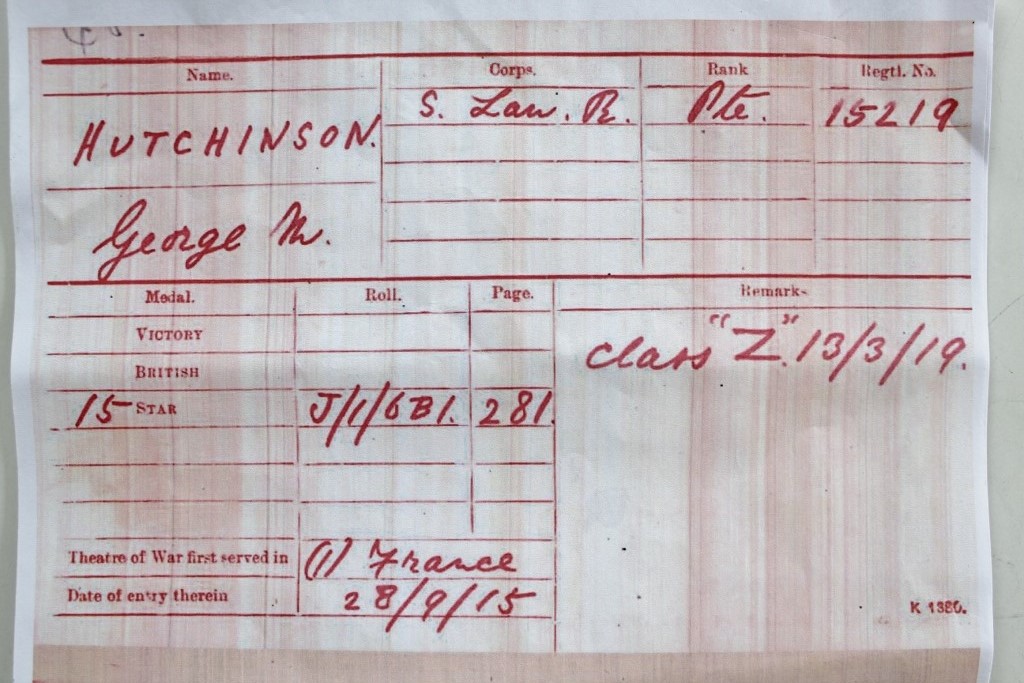 Name. Corps. Rank Regtl. No.
HUTCHINSON. S. Lan. R. Pte. 15219
George M.
Medal. Roll. Page. Remarks
VICTORY
BRITISH
15 STAR J/1/6B1. 281.
class "Z". 13/3/19.
Theatre of War first served in (1) France
Date of entry therein 28/9/15
K 1380.